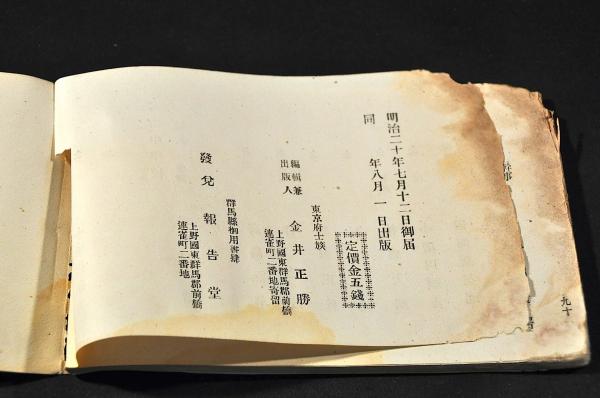 明治二十年七月十二日御届
同　　年八月一日出版
定價金五錢
東京府士族
編輯兼
出版人
金井正勝
上野國東群馬郡前橋
連雀町二番地寄留
群馬縣御用書肆
發兌　報告堂
上野國東群馬郡前橋
連雀町二番地
幹事
九十